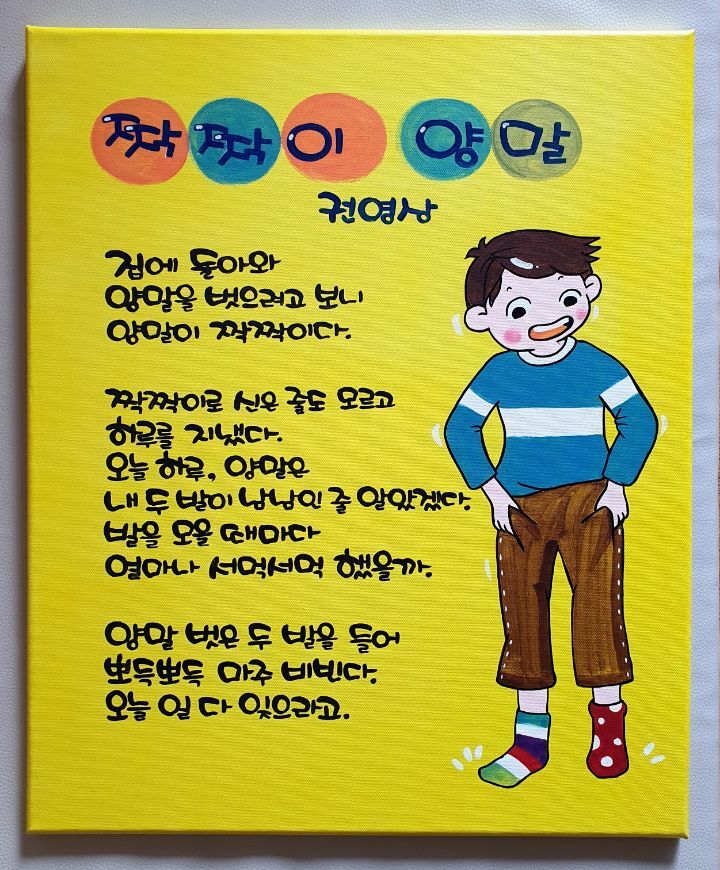 짝짝이 양말
권영상
집에 돌아와
양말을 벗으려고 보니
양말이 짝짝이다.
짝짝이로 신은 줄도 모르고
하루를 지냈다.
오늘 하루, 양말은
내 두 발이 남남인 줄 알았겠다.
발을 모을 때마다
얼마나 서먹서먹 했을까.
양말 벗은 두 발을 들어
뽀득뽀득 마주 비빈다.
오늘 일 다 잊으라고.